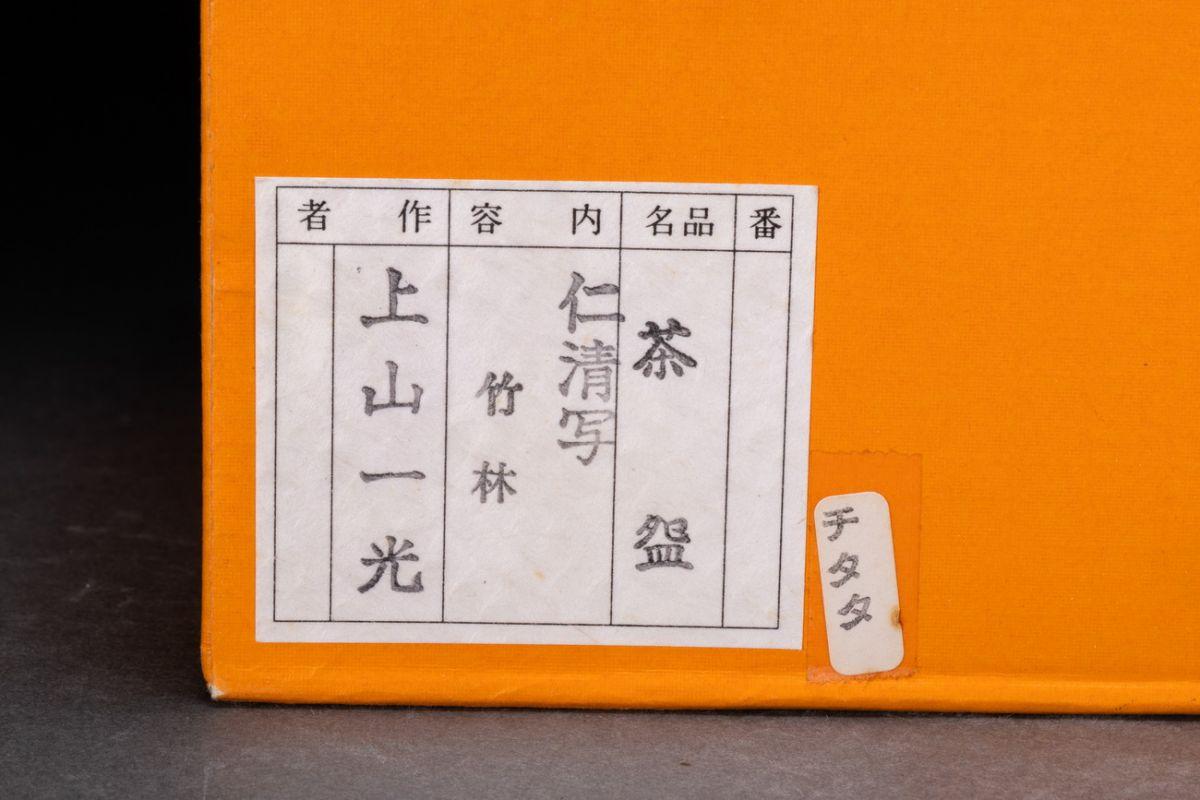 番
品名
内容
作者
茶盌
仁清写
竹林
上山一光
チタタ